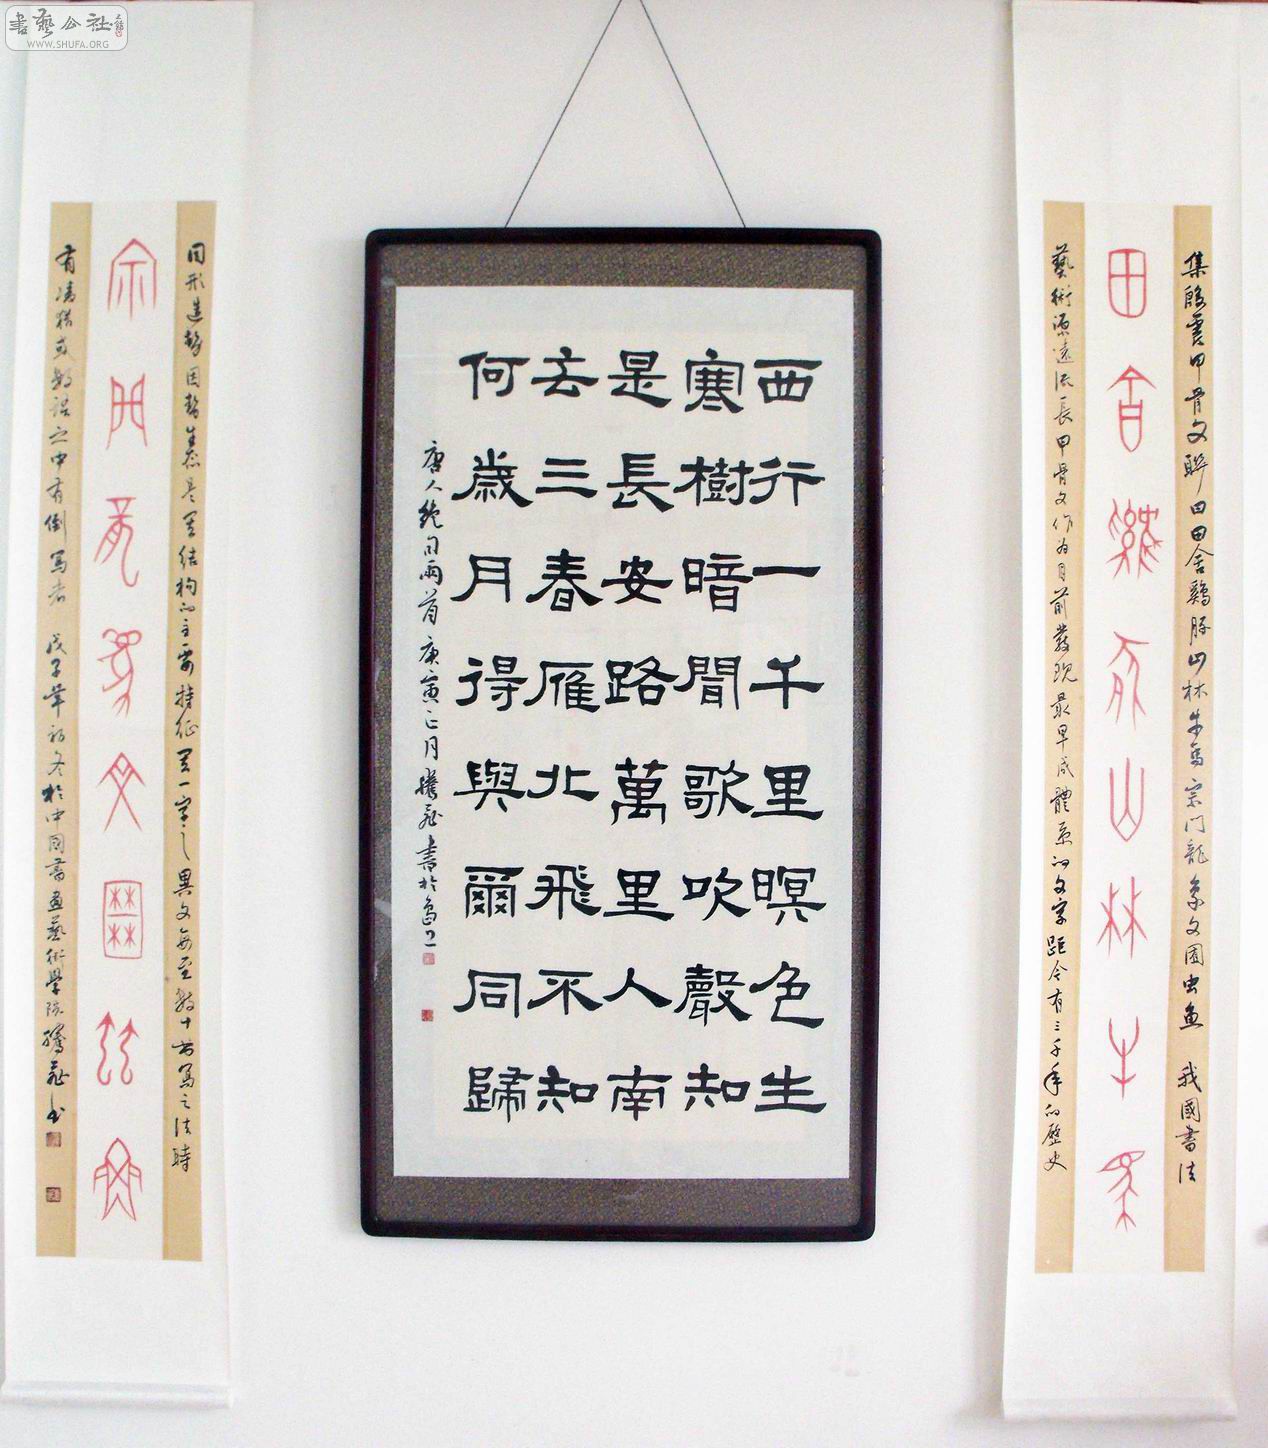 書藝公社
WWW.SHUFA.ORG
集殷虛甲骨文聯田田舍鷄豚山林牛馬宗門龍象文囿虫魚 我國書法
田舍鷄豚山林牛馬
藝術源遠流長甲骨文作为目前發现最早成體系的文字距今有三千年的歷史
西行一千里暝色生
寒樹暗聞歌吹聲知
是長安路萬里人南
去三春雁北飛不知
何歲月得與爾同歸
唐人絶句兩首 庚寅正月騰龍書於島上
同形造势因势生态是其结构的主要特征其一字之異文每至数十書寫之法時
宗門龍象文囿虫魚
有凑猎或数語之中有倒寫者 戊子年初冬於中国書画藝術學院騰龍书